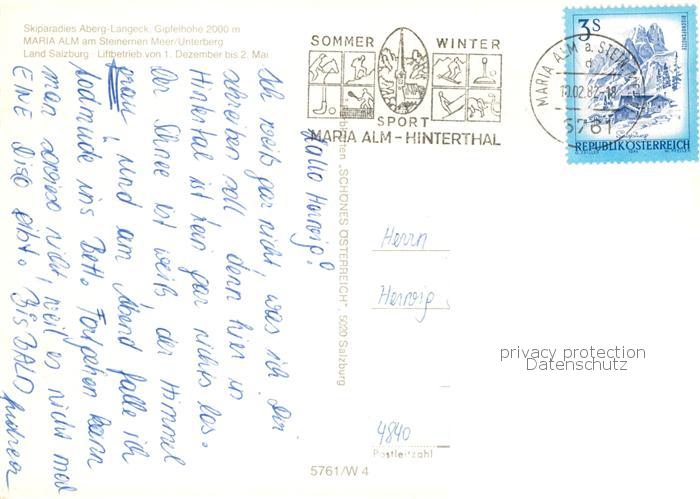 Skiparadies Aberg-Langeck, Gipfelhöhe 2000 m
MARIA ALM am Steinernen Meer/Unterberg
Land Salzburg · Liftbetrieb von 1. Dezember bis 2. Mai
Hallo Herwig!
Ich weiß gar nicht, was ich Dir
schreiben soll denn hier in
Hintertal ist rein gar nichts los.
Der Schnee ist weiß der Himmel
grau, und am Abend falle ich
todmüde ins Bett. Fortgehen kann
man sowieso nicht, weil es nicht mal
EINE Disco gibt. BIS BALD
Andrea
SOMMER WINTER
SPORT
MARIA ALM - HINTERTHAL
MARIA ALM a. STEIN.
10.02.82-18
5761
3 S
BISCHOFSMÜTZE
Salzburg
REPUBLIK ÖSTERREICH
"SCHÖNES ÖSTERREICH", 5020 Salzburg
Herrn
Herwig
privacy protection
Datenschutz
4840
Postleitzahl
5761/W 4